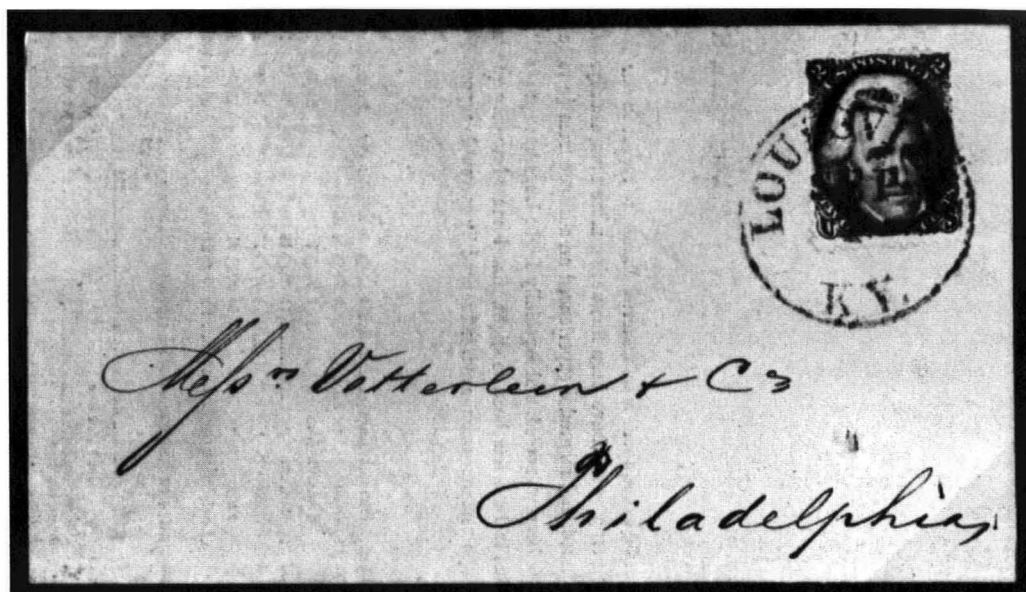 LOUISV
KY.
Messrs Votterlein & Co
Philadelphia,